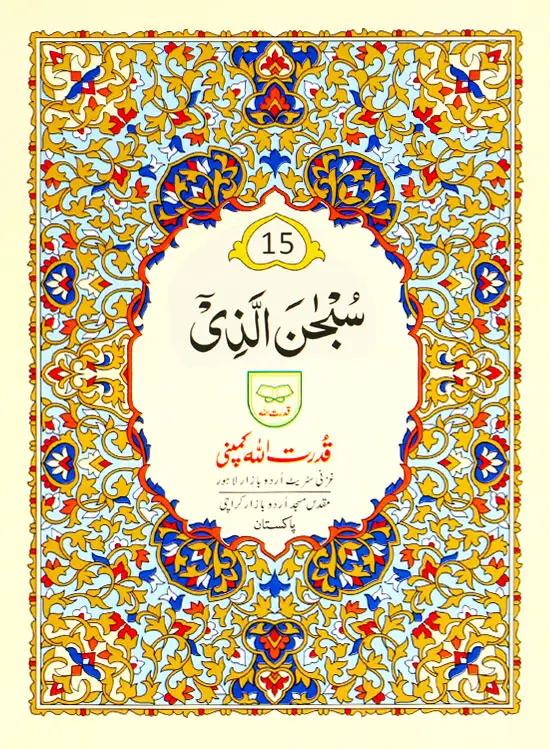 15
سُبْحٰنَ الَّذِیْۤ
قدرت اللہ
قُدرت اللہ کمپنی
غزنی سٹریٹ اُردو بازار لاہور
مقدس مسجد اُردو بازار کراچی
پاکستان